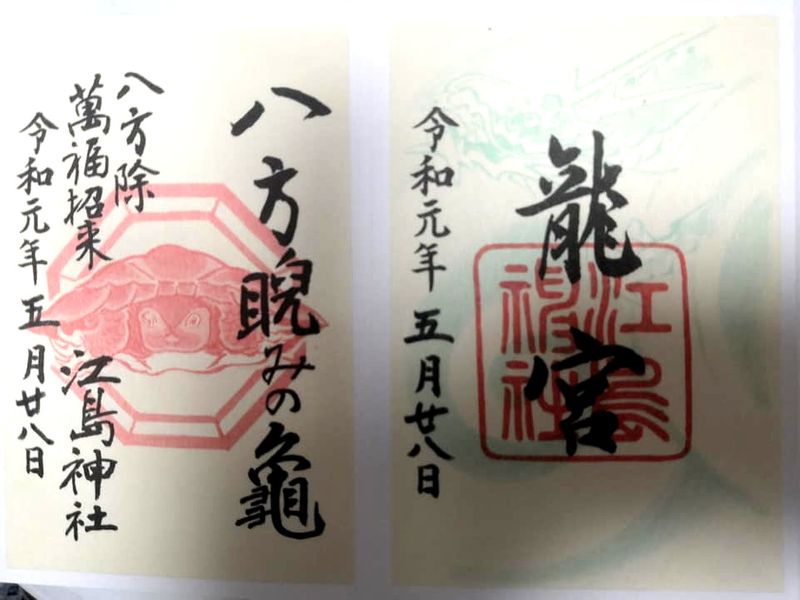 龍宮
江島神社
令和元年五月廿八日
八方睨みの亀
八方除
萬福招来
江島神社
令和元年五月廿八日